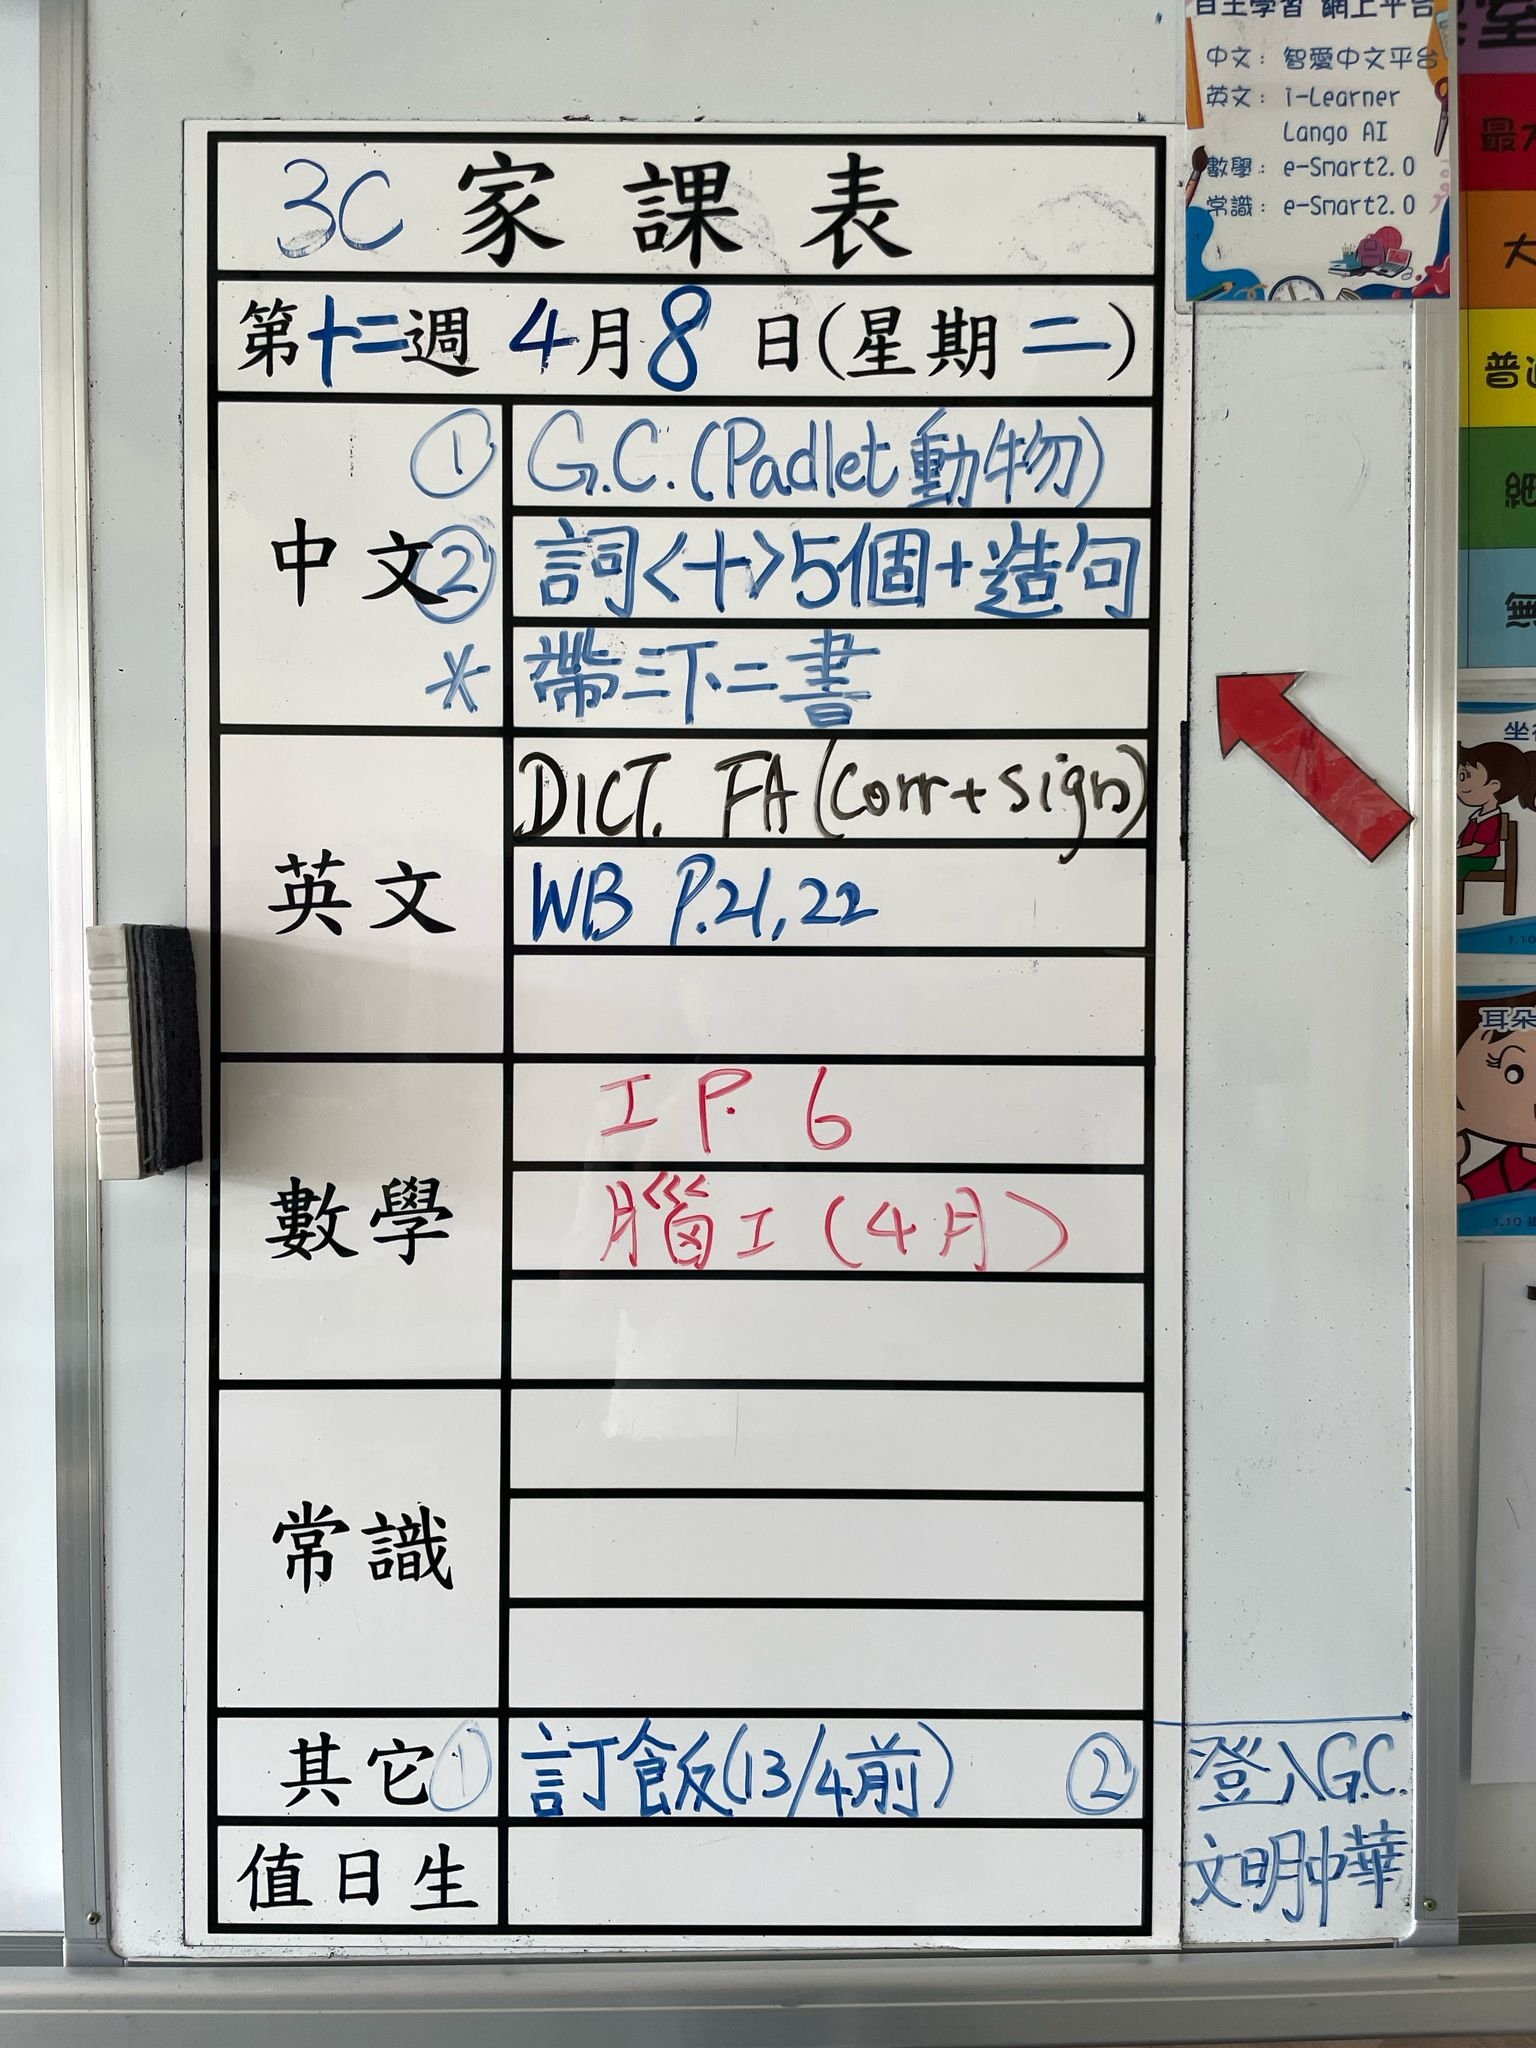 3C 家課表
第十二週 4月8日(星期二)
中文
① G.C.(Padlet動物)
② 詞<十>5個+造句
* 帶三下二書
英文
DICT. FA (Corr + sign)
WB P.21,22
數學
工 P. 6
腦工(4月)
常識
其它
① 訂飯(13/4前)
② 登入G.C.
文明中華
值日生
自主學習 網上平台
中文: 智愛中文平台
英文: i-Learner
Lango AI
數學: e-Smart2.0
常識: e-Smart2.0
室
最大
大
普通
細
無
坐
1.10
耳朵
1.10